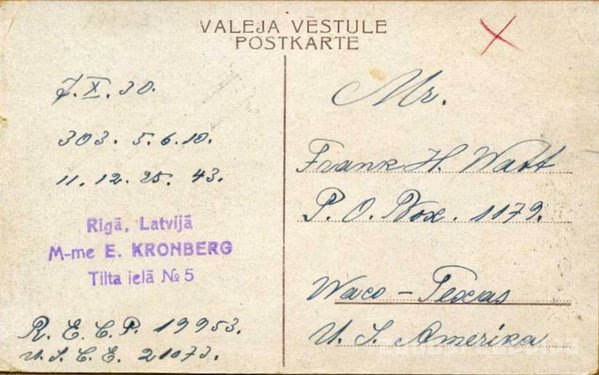 VALEJA VĒSTULE
POSTKARTE
7. X. 30.
303. 5. 6. 10.
11. 12. 25. 43.
Rīgā, Latvijā
M-me E. KRONBERG
Tilta ielā № 5
R. E. C. P. 19953.
U. S. C. E. 21073.
Mr.
Frank H. Watt
P. O. Box. 1179.
Waco – Texas
U. S. Amerika